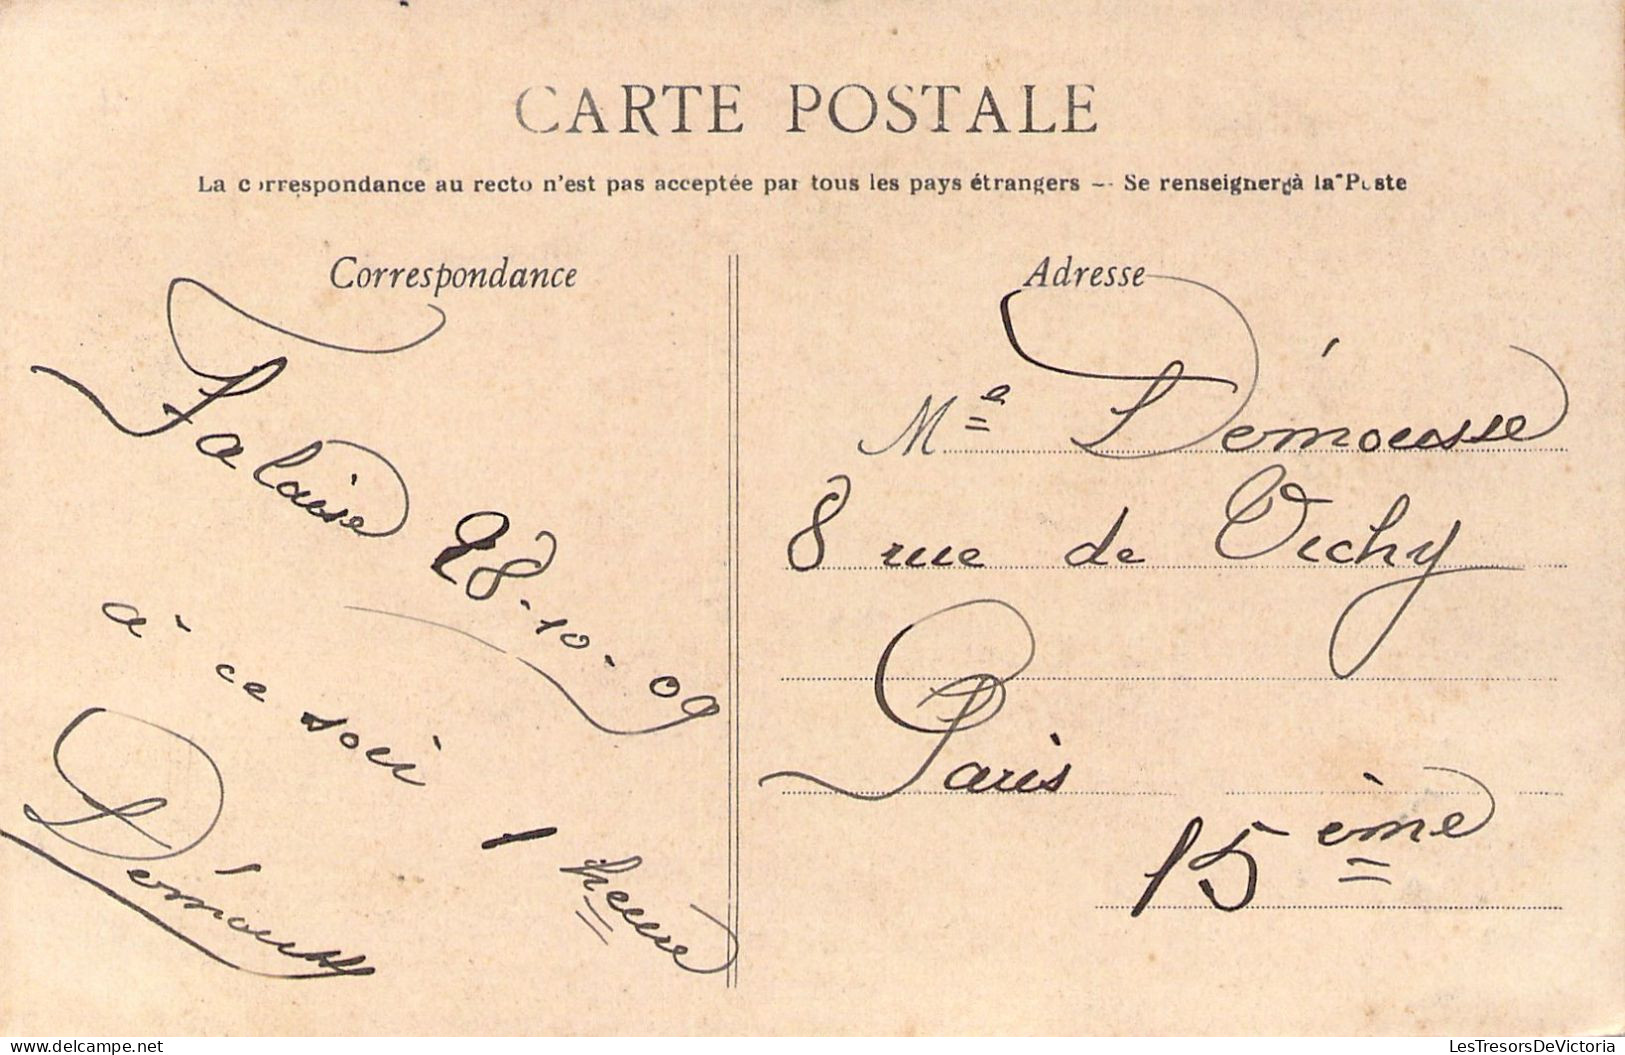 CARTE POSTALE
La correspondance au recto n'est pas acceptée par tous les pays étrangers -- Se renseigner à la Poste
Correspondance
Falaise 28-10-09
à ce soir 1 heure
Démousse
Adresse
Me Démousse
8 rue de Vichy
Paris
15ème
LesTresorsDeVictoria
https://www.delcampe.net